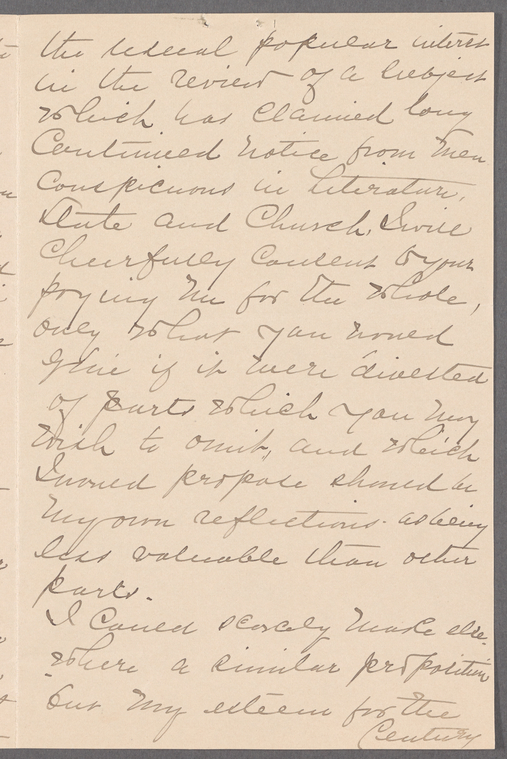 the  popular interest
in the review of a subject
which has claimed long
Continued notice from men
Conspicuous in Literature,
State and Church, I will
Cheerfully Consent to your
paying me for the whole,
only what you would
give if it were divested
of parts which you may
wish to omit, and which
I would propose should be
my own reflections - as being
less valuable than other
parts.
I Could scarcely make else-
where a similar proposition
but my esteem for the
Century